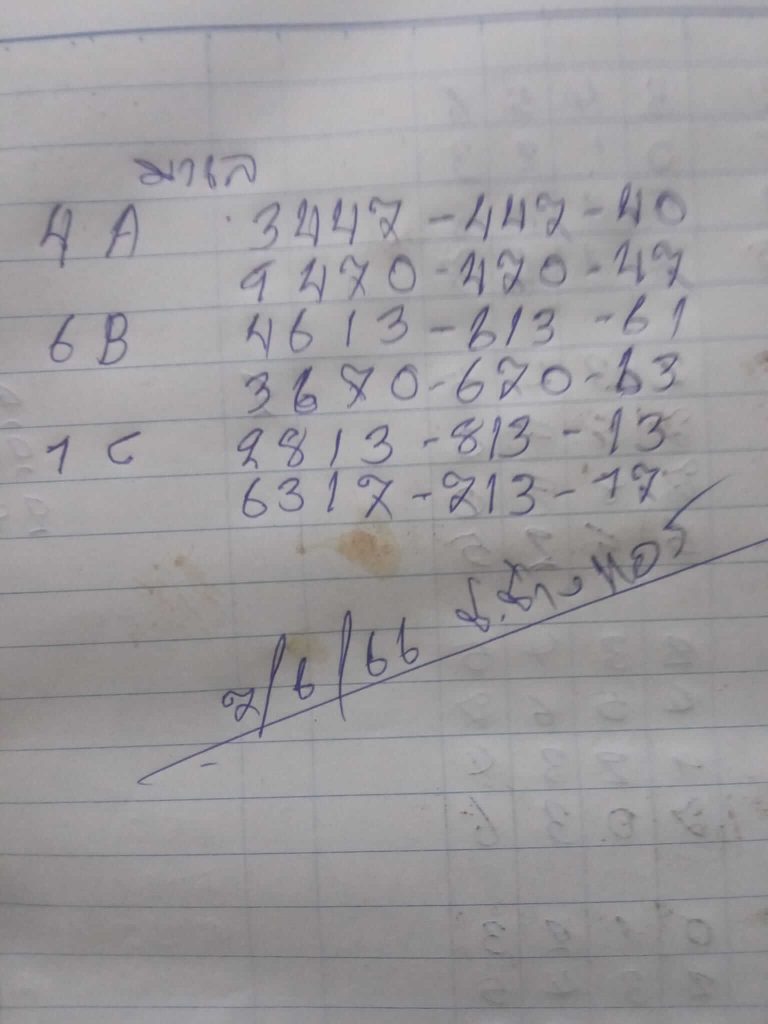 มาเล
4 A 3447-447-40
9470-470-47
6 B 4613-613-61
3670-670-63
1 C 2813-813-13
6317-713-17
7/6/66